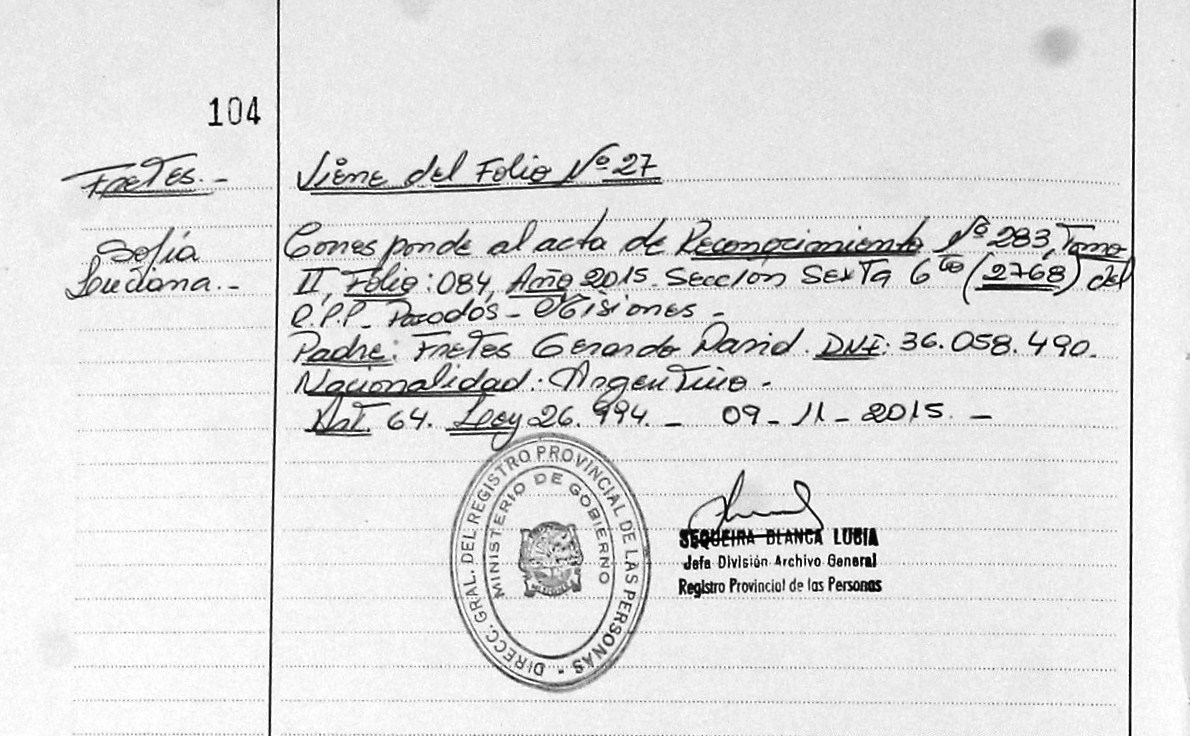 104
Fretes.-
Viene del Folio Nº 27
Sofía
Luciana.-
Corresponde al acta de Reconocimiento Nº 283, Tomo
II, Folio: 084, Año 2015. Sección Sexta 6ta (2768) del
R.P.P.
Padre: Fretes Gerardo David. DNI: 36.058.490.
Nacionalidad: Argentino.
Art. 64. Ley 26.994.- 09-11-2015.-
DIRECC. GRAL. DEL REGISTRO PROVINCIAL DE LAS PERSONAS -
MINISTERIO DE GOBIERNO
SEQUEIRA BLANCA LUBIA
Jefa División Archivo General
Registro Provincial de las Personas